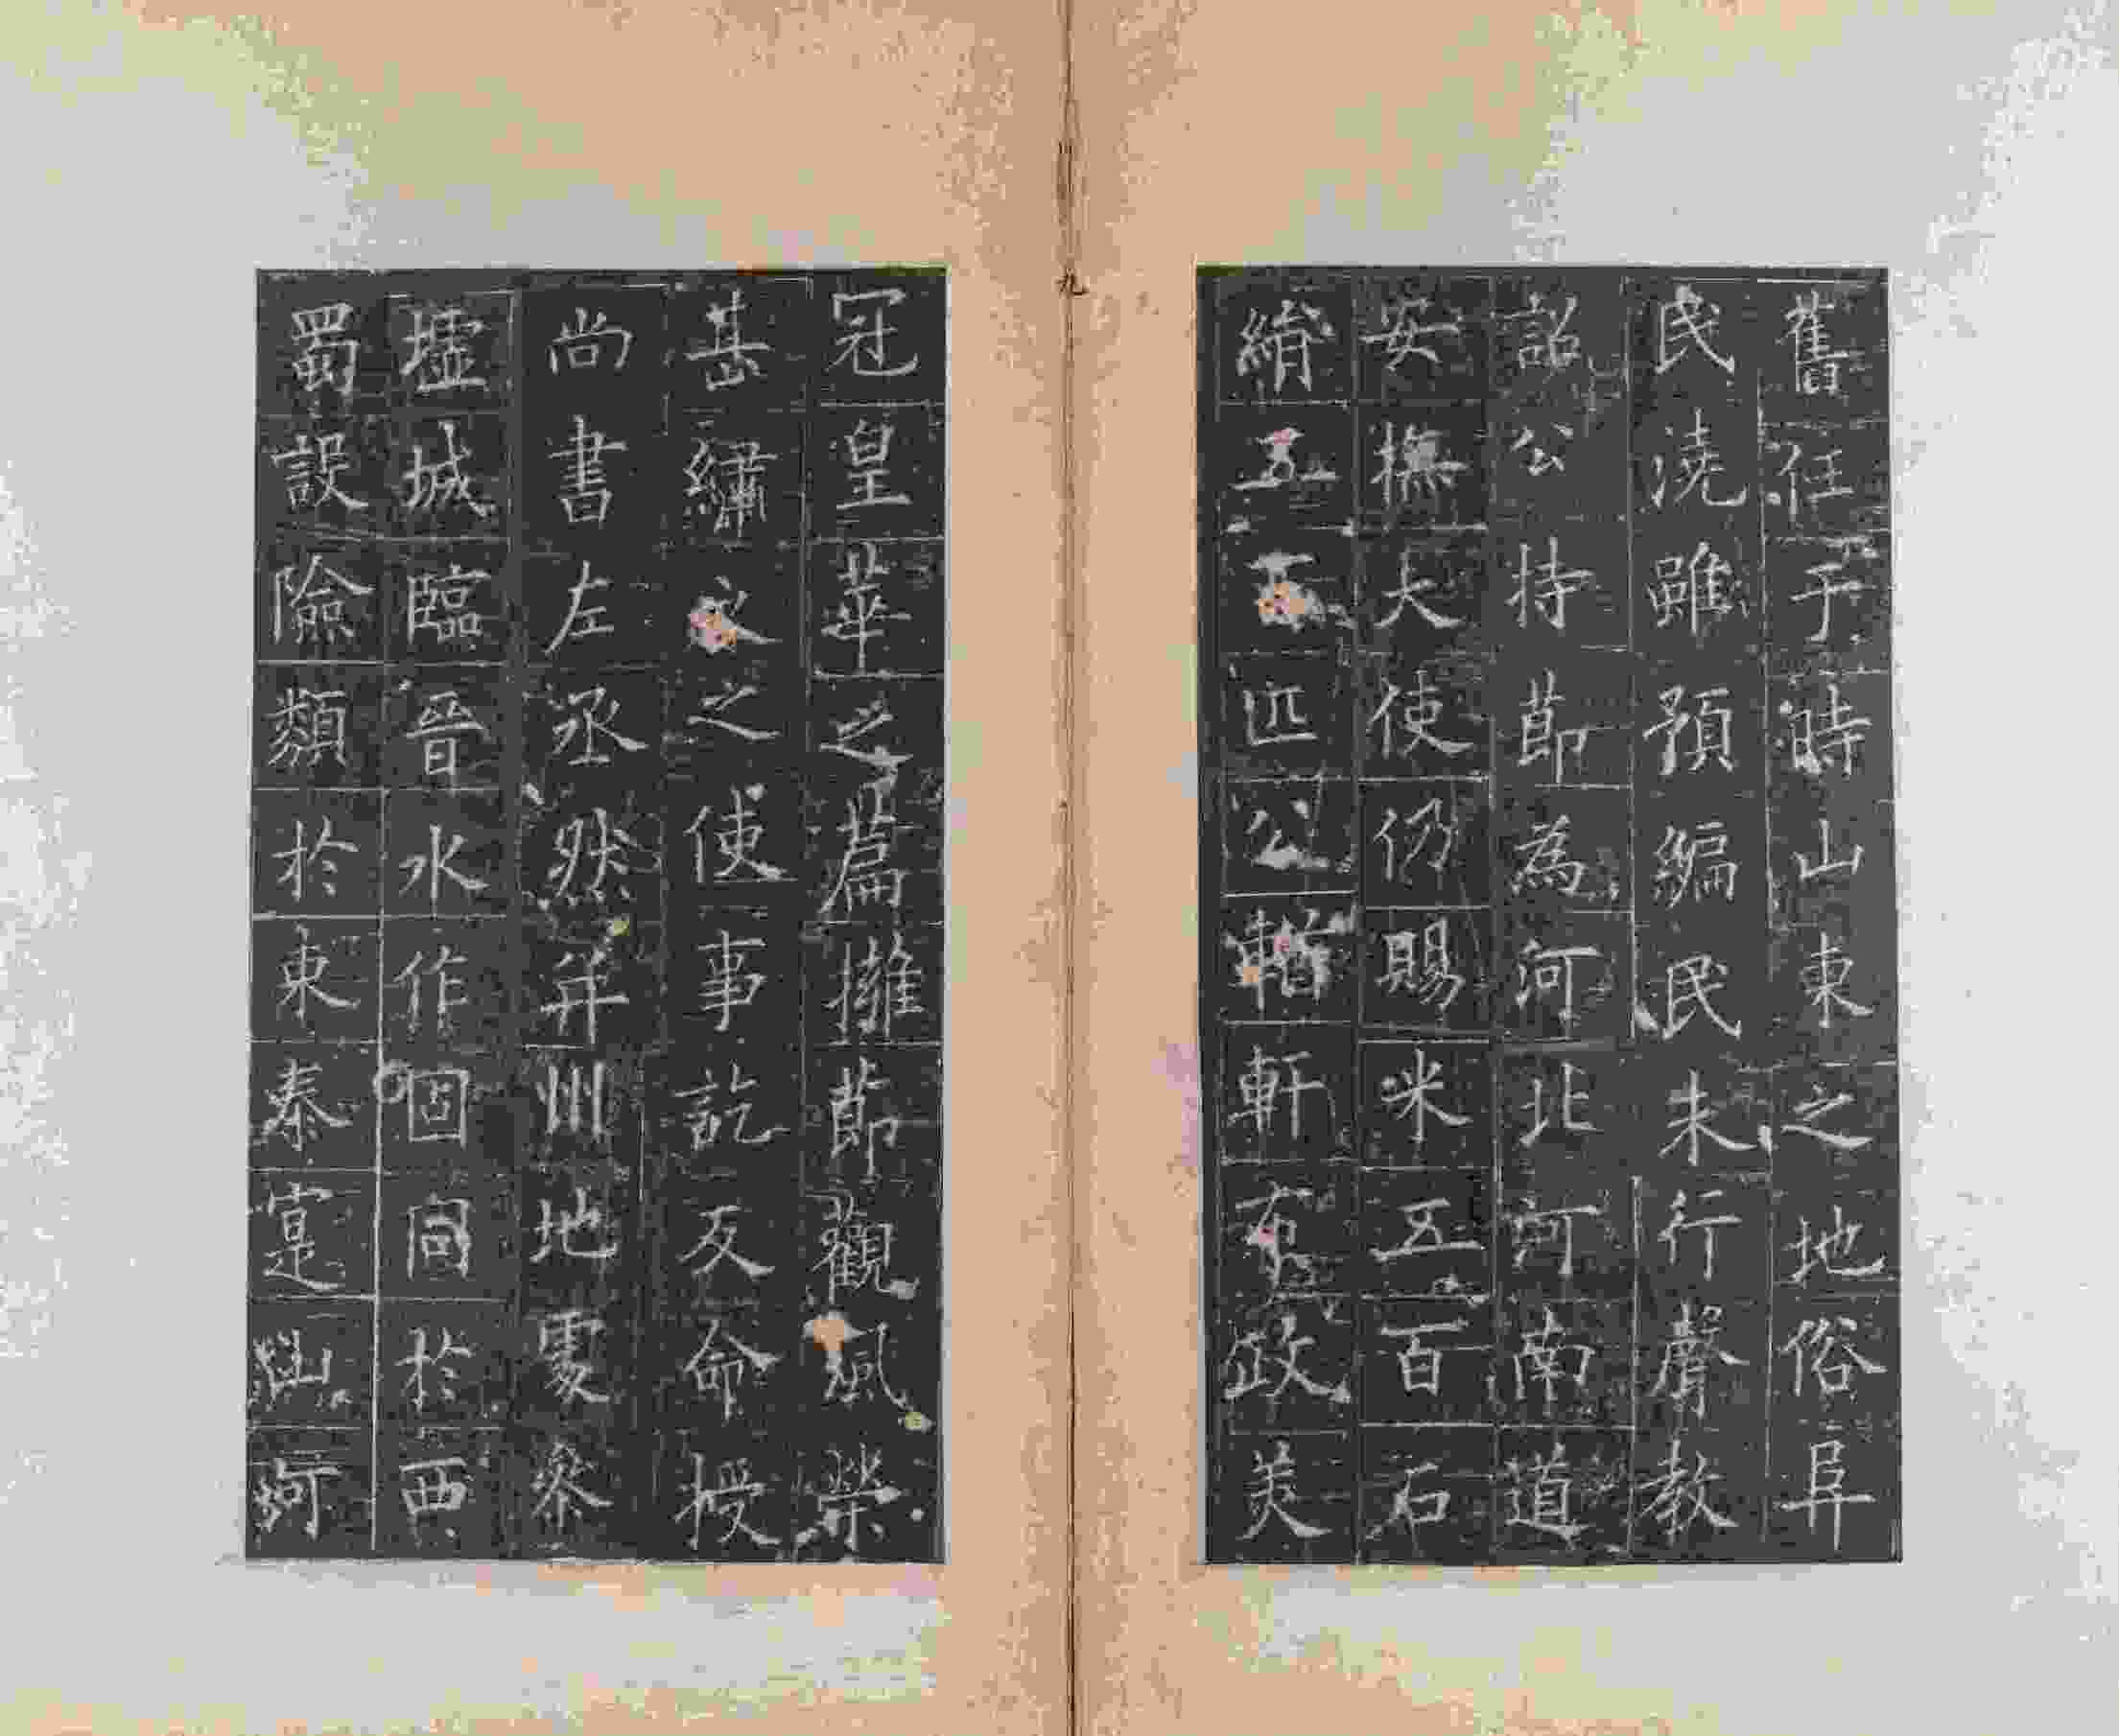 舊任于時山東之地俗阜
民澆雖預編民未行聲教
詔公持節為河北河南道
安撫大使仍賜米五百石
絹五百匹公輶軒布政美
九
冠皇華之篇擁節觀風榮
甚繡衣之使事訖反命授
尚書左丞然并州地處參
墟城臨晉水作固同於西
蜀設險類於東秦寔山河